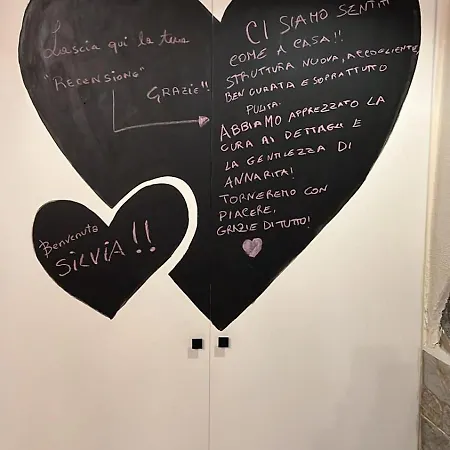 Lascia qui la tua
"RECENSIONE"
GRAZIE!!
CI SIAMO SENTITI
COME A CASA!!
STRUTTURA NUOVA, ACCOGLIENTE,
BEN CURATA E SOPRATTUTTO
PULITA.
ABBIAMO APPREZZATO LA
CURA AI DETTAGLI E
LA GENTILEZZA DI
ANNARITA!
TORNEREMO CON
PIACERE,
GRAZIE DI TUTTO!
Benvenuta
SILVIA!!